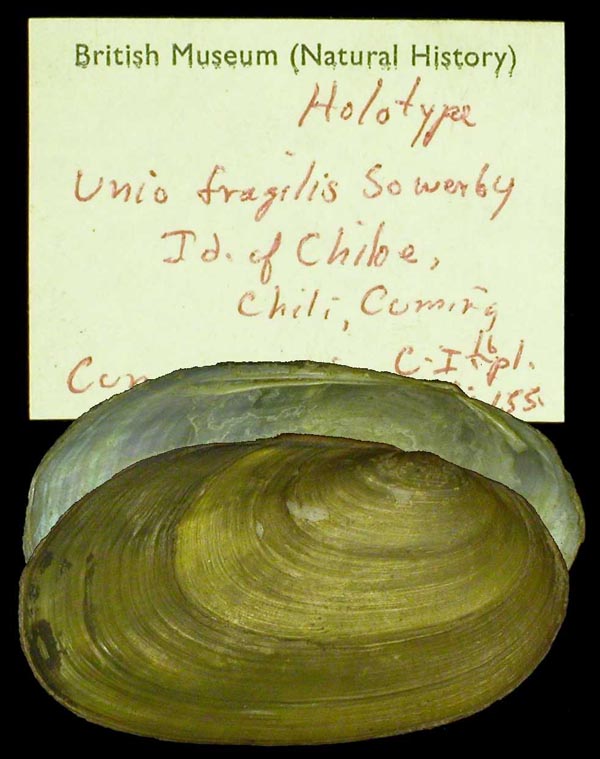 British Museum (Natural History)
Holotype
Unio fragilis Sowerby
Id. of Chiloe,
Chili, Cuming
C.I. 16 pl.
155.